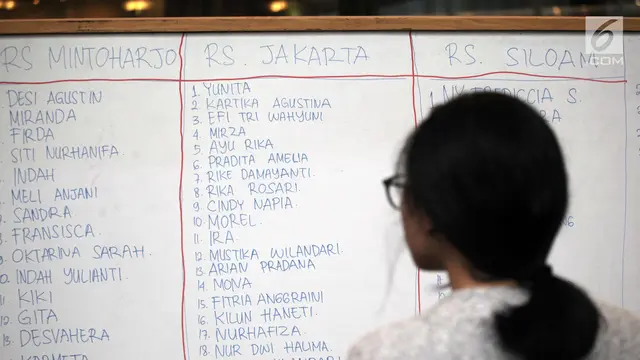 RS MINTOHARJO
DESI AGUSTIN
MIRANDA
FIRDA
SITI NURHANIFA.
INDAH
MELI ANJANI
SANDRA
FRANSISCA.
OKTARINA SARAH.
INDAH YULIANTI.
11 KIKI
12. GITA
13. DESVAHERA
RS. JAKARTA
1. YUNITA
2 KARTIKA AGUSTINA
3 EFI TRI WAHYUNI
4. MIRZA
5 AYU RIKA
6. PRADITA AMELIA
7. RIKE DAMAYANTI.
8. RIKA ROSARI.
9. CINDY NAPIA.
10. MOREL.
11. IRA.
12. MUSTIKA WILANDARI.
13. ARIAN PRADANA
14. MONA
15. FITRIA ANGGRAINI
16. KILUN HANETI.
17. NURHAFIZA.
18. NUR DWI HALIMA.
RS. SILOAM
6
.COM